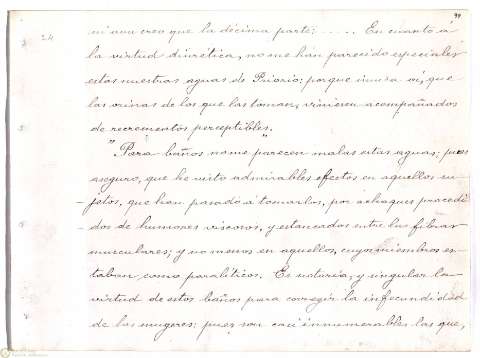 99
24
ni aun creo que la décima parte; ..... En cuanto á
la virtud diurética, no me han parecido especiales
estas nuestras aguas de Priorio; porque nunca ví, que
las orinas de los que las toman, viniesen acompañados
de recrementos perceptibles."
"Para baños no me parecen malas estas aguas; pues
aseguro, que he visto admirables efectos en aquellos su-
jetos, que han pasado á tomarlos, por achaques procedi-
dos de humores viscosos, y estancados entre las fibras
musculares; y no menos en aquellos, cuyos miembros es-
taban, como paralíticos. Es notoria, y singular la
virtud de estos baños para corregir la infecundidad
de las mugeres; pues son casi innumerables las que,